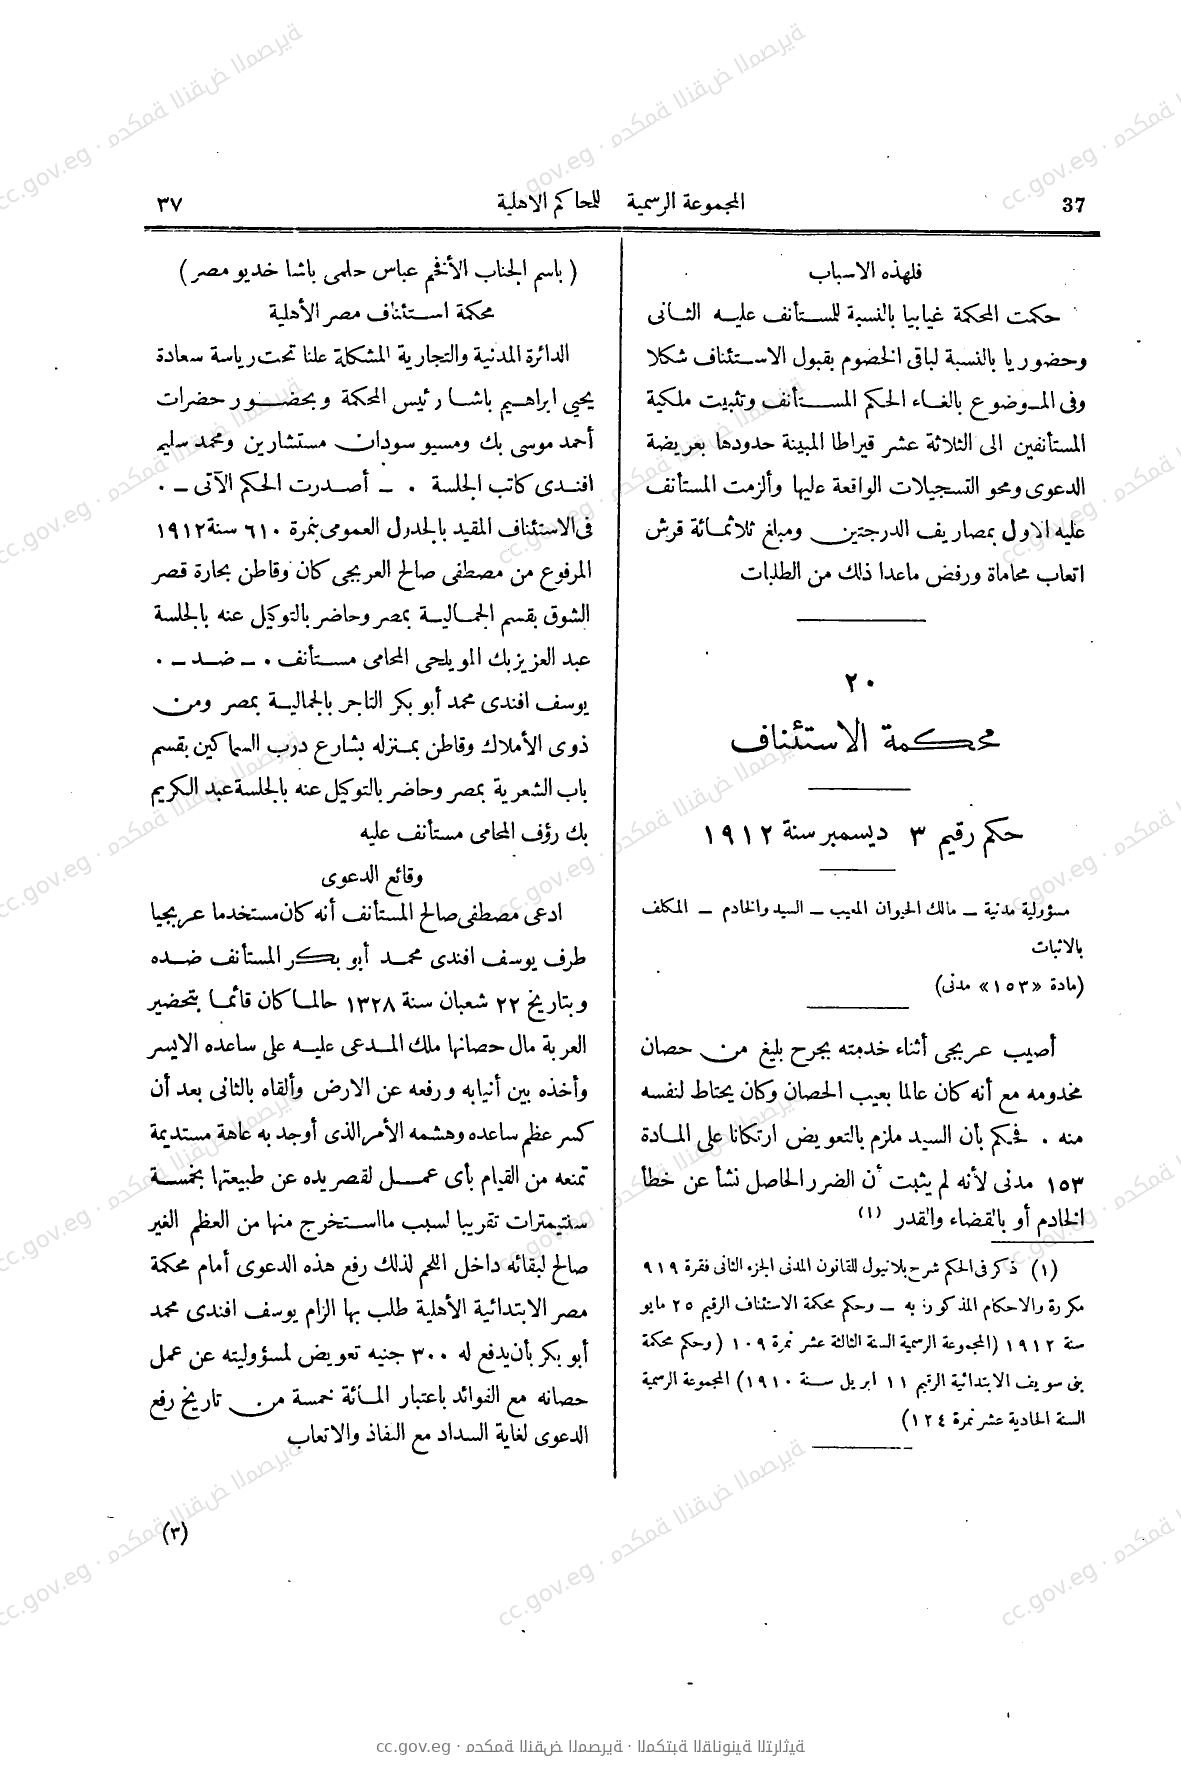 37
المجموعة الرسمية للمحاكم الاهلية
٣٧
فلهذه الاسباب
حكمت المحكمة غيابيا بالنسبة للمستأنف عليه الثانى
وحضوريا بالنسبة لباقى الخصوم بقبول الاستئناف شكلا
وفى الموضوع بالغاء الحكم المستأنف وتثبيت ملكية
المستأنفين الى الثلاثة عشر قيراطا المبينة حدودها بعريضة
الدعوى ومحو التسجيلات الواقعة عليها وألزمت المستأنف
عليه الاول بمصاريف الدرجتين ومبلغ ثلاثمائة قرش
اتعاب محاماة ورفض ماعدا ذلك من الطلبات
٢٠
محكمة الاستئناف
حكم رقيم ٣ ديسمبر سنة ١٩١٢
مسؤولية مدنية – مالك الحيوان المعيب – السيد والخادم – المكلف
بالاثبات
(مادة «١٥٣» مدنى)
أصيب عربجى أثناء خدمته بجرح بليغ من حصان
مخدومه مع أنه كان عالما بعيب الحصان وكان يحتاط لنفسه
منه . فحكم بأن السيد ملزم بالتعويض ارتكانا على المادة
١٥٣ مدنى لأنه لم يثبت أن الضرر الحاصل نشأ عن خطأ
الخادم أو بالقضاء والقدر (١)
(١) ذكر فى الحكم شرح بلانيول للقانون المدنى الجزء الثانى فقرة ٩١٩
مكررة والاحكام المذكورة به – وحكم محكمة الاستئناف الرقيم ٢٥ مايو
سنة ١٩١٢ (المجموعة الرسمية السنة الثالثة عشر نمرة ١٠٩ (وحكم محكمة
بنى سويف الابتدائية الرقيم ١١ ابريل سنة ١٩١٠) المجموعة الرسمية
السنة الحادية عشر نمرة ١٢٤)
( باسم الجناب الأفخم عباس حلمى باشا خديو مصر )
محكمة استئناف مصر الأهلية
الدائرة المدنية والتجارية المشكلة علنا تحت رياسة سعادة
يحيى ابراهيم باشا رئيس المحكمة وبحضور حضرات
أحمد موسى بك ومسيو سودان مستشارين ومحمد سليم
افندى كاتب الجلسة . – أصدرت الحكم الآتى – .
فى الاستئناف المقيد بالجدول العمومى بنمرة ٦١٠ سنة ١٩١٢
المرفوع من مصطفى صالح العربجى كان وقاطن بحارة قصر
الشوق بقسم الجمالية بمصر وحاضر بالتوكيل عنه بالجلسة
عبد العزيز بك المويلحى المحامى مستأنف . – ضد – .
يوسف افندى محمد أبو بكر التاجر بالجمالية بمصر ومن
ذوى الأملاك وقاطن بمنزله بشارع درب السماكين بقسم
باب الشعرية بمصر وحاضر بالتوكيل عنه بالجلسة عبد الكريم
بك رؤف المحامى مستأنف عليه
وقائع الدعوى
ادعى مصطفى صالح المستأنف أنه كان مستخدما عربجيا
طرف يوسف افندى محمد أبو بكر المستأنف ضده
وبتاريخ ٢٢ شعبان سنة ١٣٢٨ حالما كان قائما بتحضير
العربة مال حصانها ملك المدعى عليه على ساعده الايسر
وأخذه بين أنيابه ورفعه عن الارض وألقاه بالثانى بعد أن
كسر عظم ساعده وهشمه الأمر الذى أوجد به عاهة مستديمة
تمنعه من القيام بأى عمل لقصر يده عن طبيعتها بخمسة
سنتيمترات تقريبا لسبب مااستخرج منها من العظم الغير
صالح لبقائه داخل اللحم لذلك رفع هذه الدعوى أمام محكمة
مصر الابتدائية الأهلية طلب بها الزام يوسف افندى محمد
أبو بكر بأن يدفع له ٣٠٠ جنيه تعويض لمسؤوليته عن عمل
حصانه مع الفوائد باعتبار المائة خمسة من تاريخ رفع
الدعوى لغاية السداد مع النفاذ والاتعاب
(٣)
cc.gov.eg · محكمة النقض المصرية · المكتبة القانونية التراثية